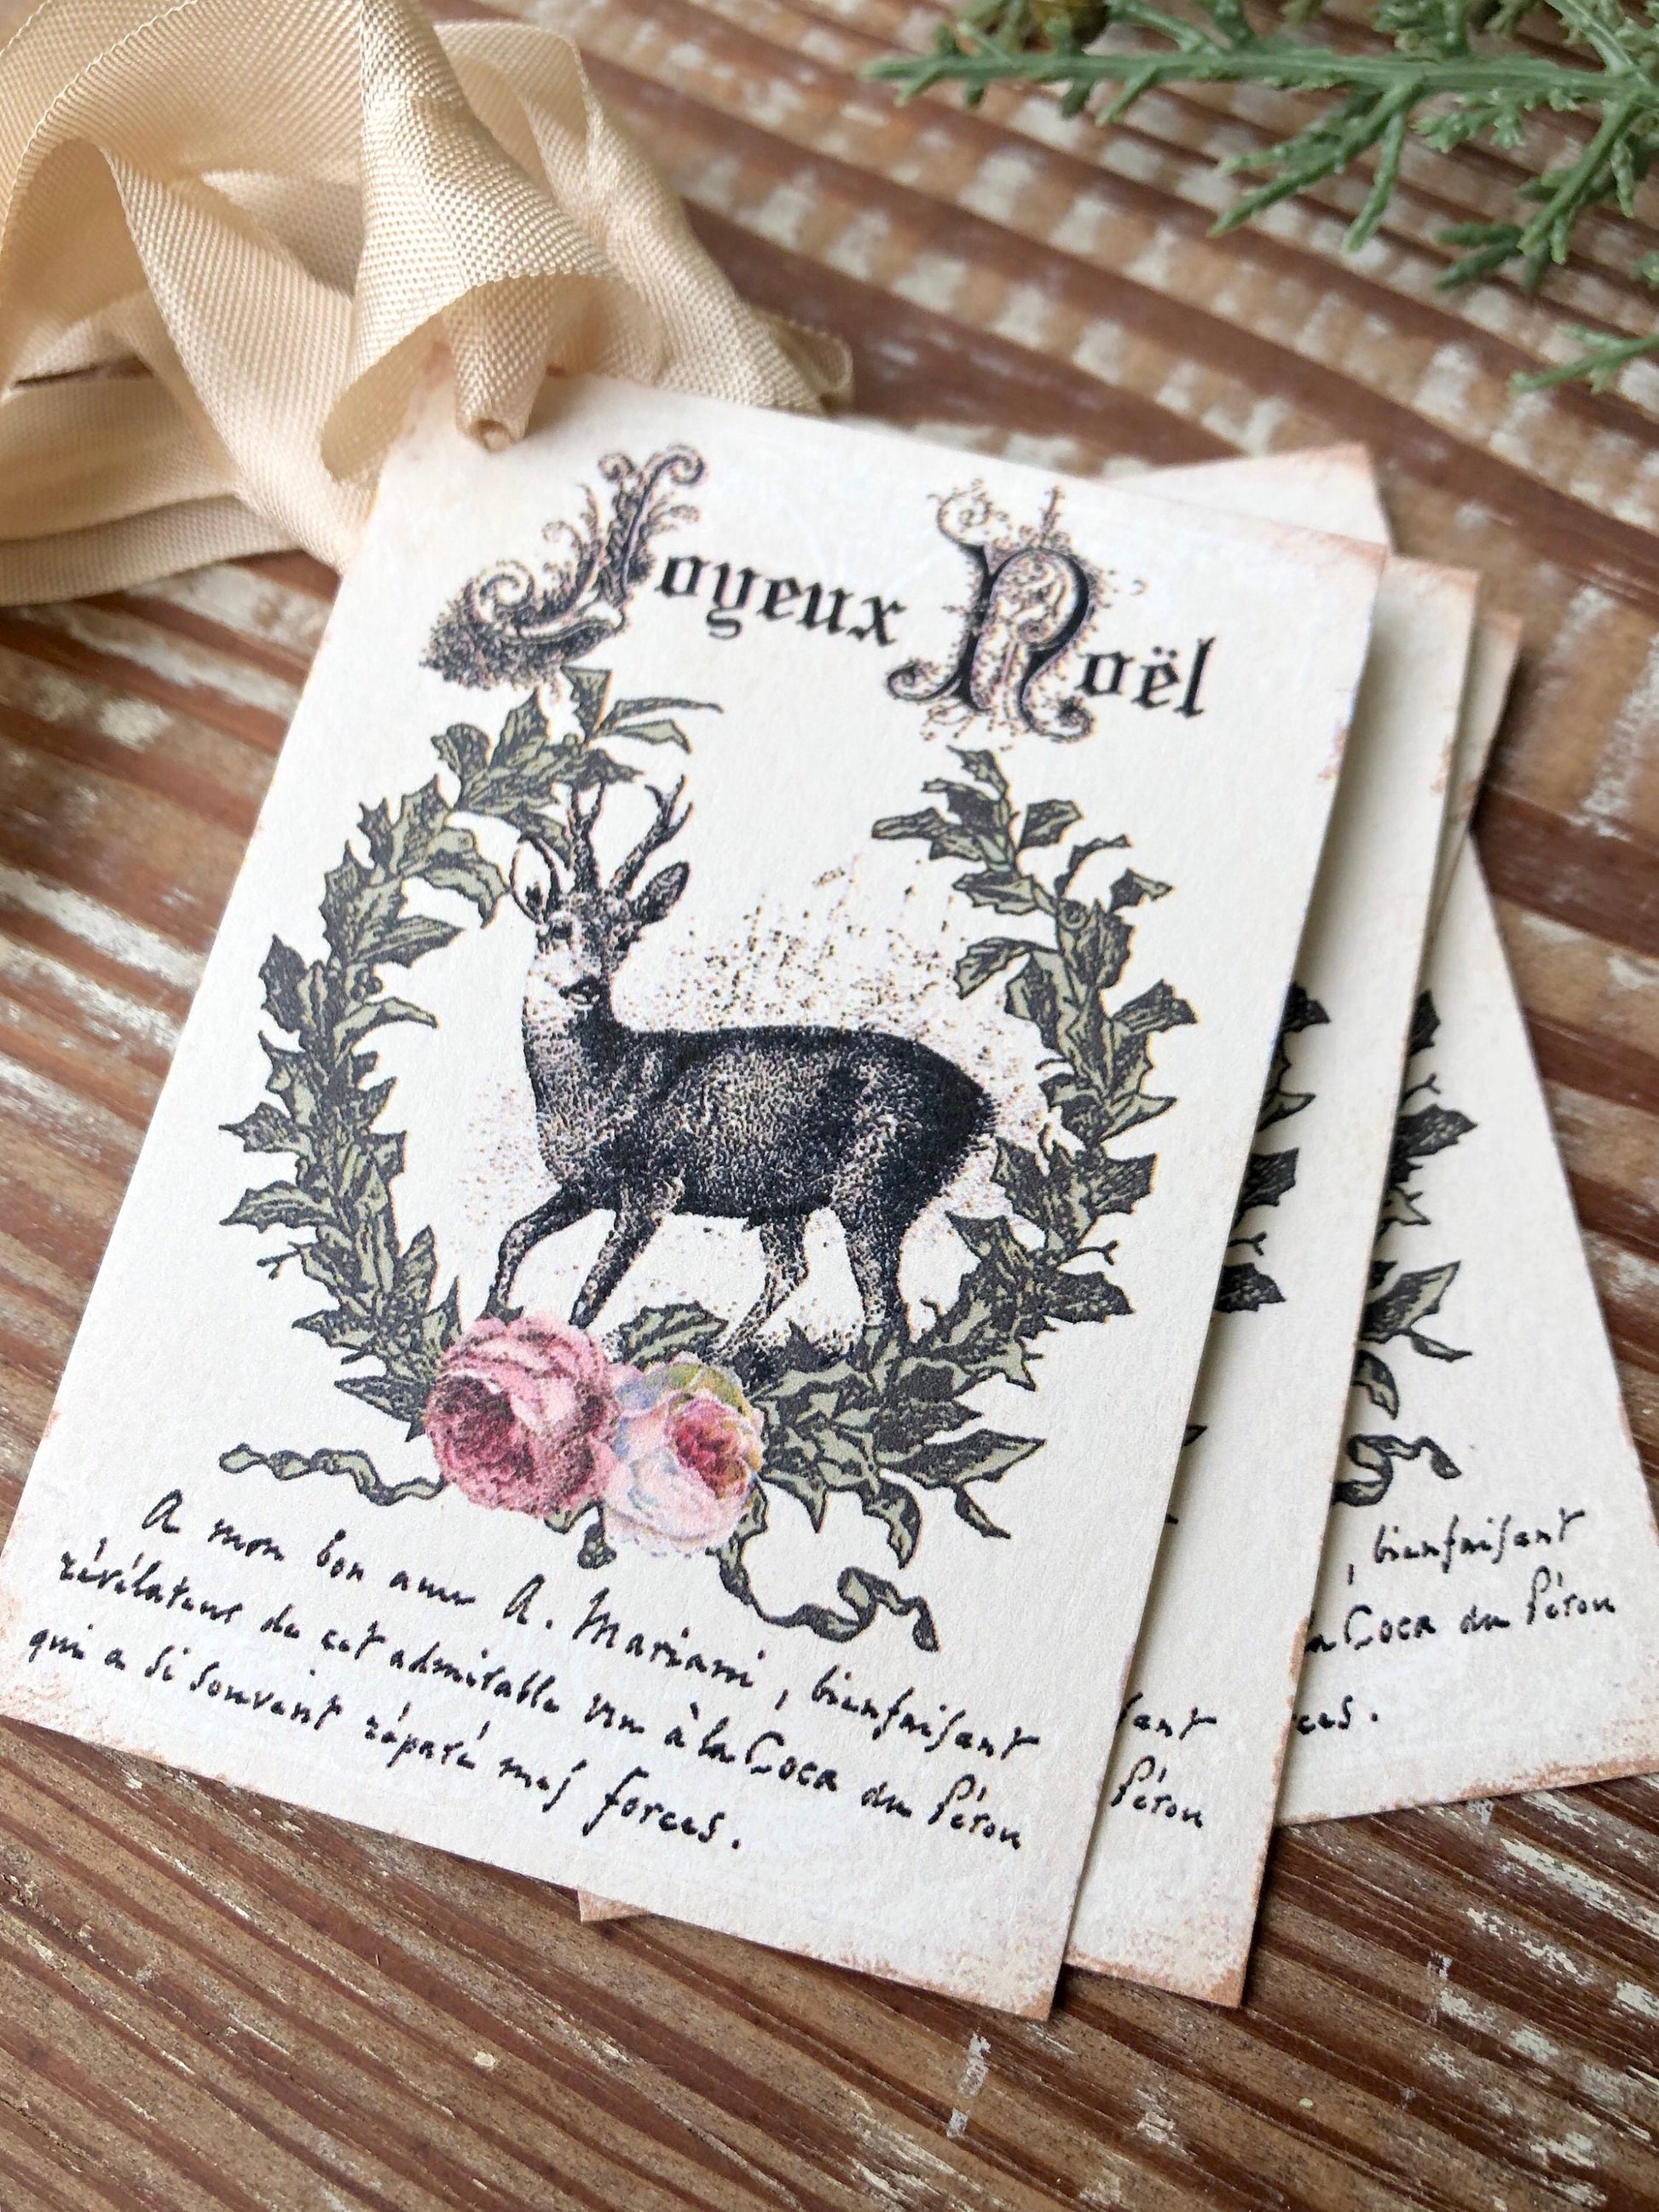 Joyeux Noël
A mon bon ami A. Mariani, bienfaisant
révélateur de cet admirable vin à la Coca du Pérou
qui a si souvent réparé mes forces.
, bienfaisant
la Coca du Pérou
ces.
sant
Pérou